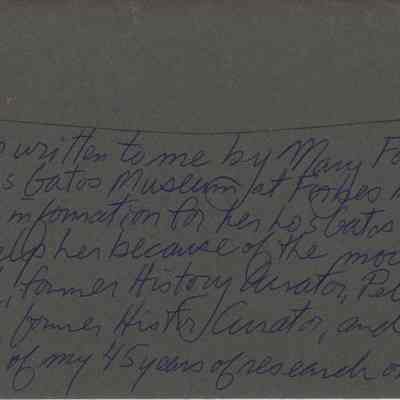 written to me by Mary Fo
s Gatos Museum at Forbes
information for her Los Gatos
help her because of the mo
former History Curator, Pe
former History Curator, and
of my 45 years of research o